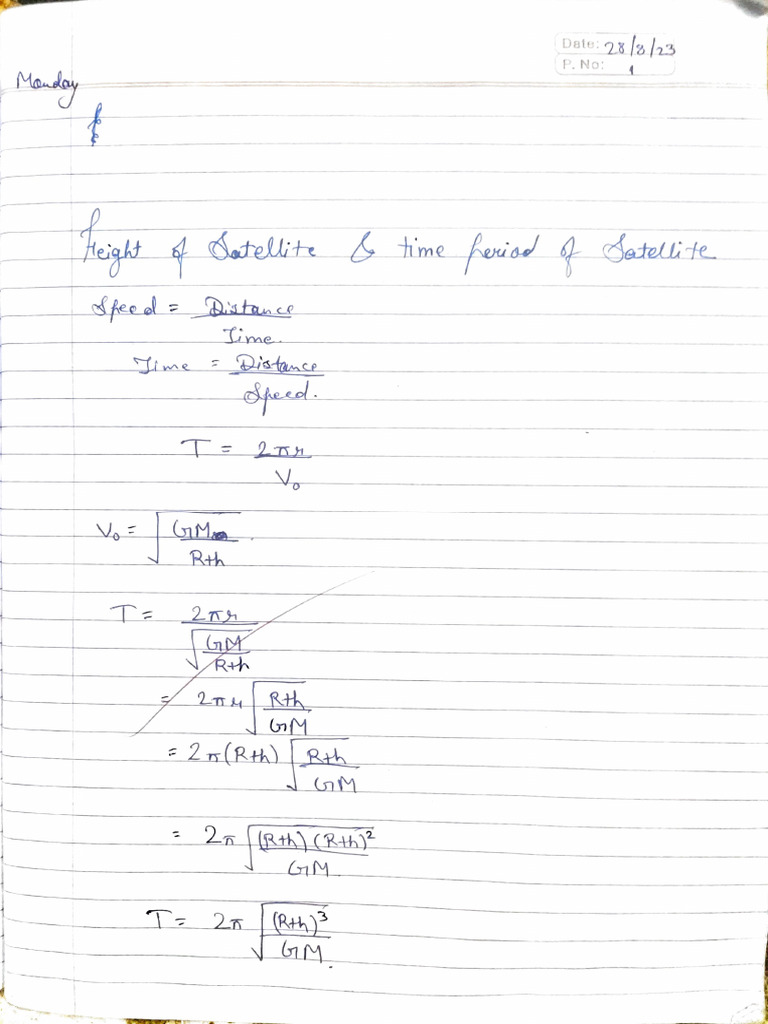 Date: 28/8/23
P. No: 1
Monday
Height of Satellite & time period of Satellite
Speed = Distance / Time.
Time = Distance / Speed.
T = 2πr / V₀
V₀ = √(GM / R+h)
T = 2πr / √(GM / R+h)
= 2πr √(R+h / GM)
= 2π(R+h) √(R+h / GM)
= 2π √((R+h) (R+h)² / GM)
T = 2π √((R+h)³ / GM).